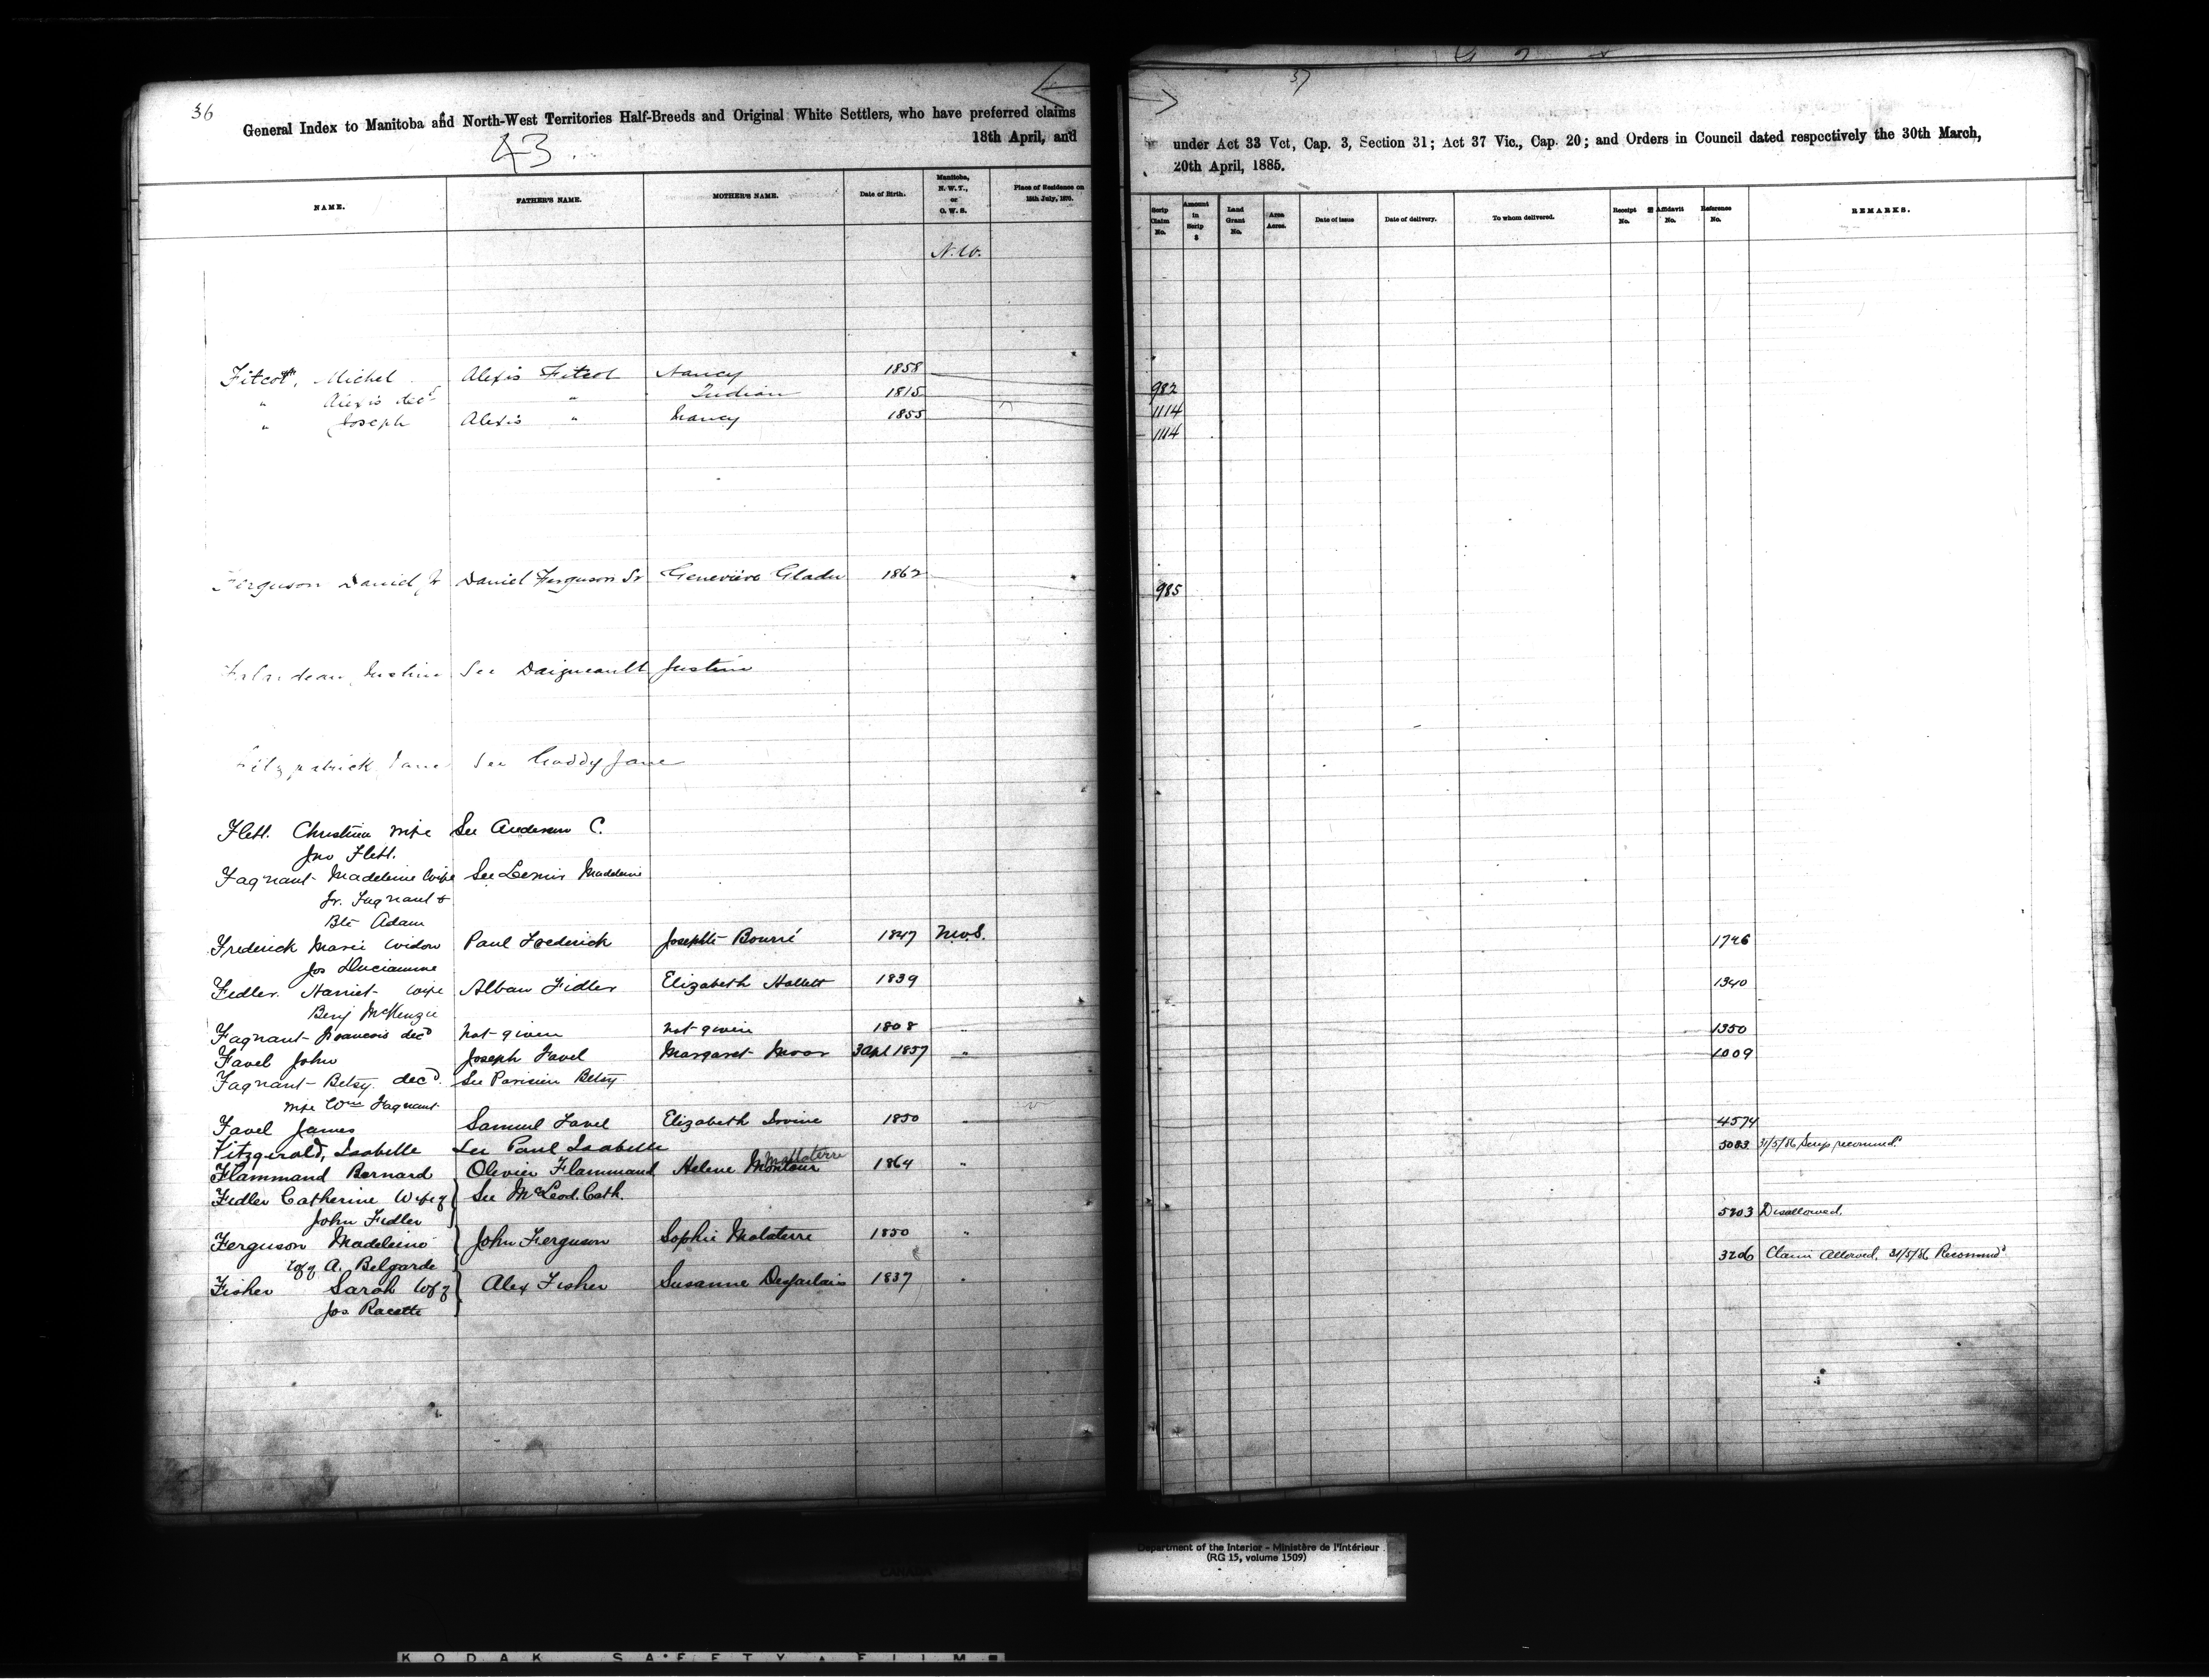 36
37
General Index to Manitoba and North-West Territories Half-Breeds and Original White Settlers, who have preferred claims under Act 33 Vct, Cap. 3, Section 31; Act 37 Vic., Cap. 20; and Orders in Council dated respectively the 30th March,
18th April, and 20th April, 1885.
43
NAME. FATHER'S NAME. MOTHER'S NAME. Date of Birth. Manitoba, N. W. T., or O. W. S. Place of Residence on 15th July, 1870. Scrip Claim No. Amount in Scrip $ Land Grant No. Area Acres. Date of issue Date of delivery. To whom delivered. Receipt No. Affidavit No. Reference No. REMARKS.
N.W.
Fitcot, Michel Alexis Fitcol Nancy 1858 982
" Alexis decd " Indian 1815 1114
" Joseph Alexis " Nancy 1855 1114
Ferguson Daniel Jr Daniel Ferguson Sr Genevieve Gladu 1862 985
Justine See Daigneault Justine
Fitzpatrick Jane See Gaddy Jane
Flett. Christina wife See Anderson C.
Jno Flett.
Fagnant Madeleine Wife See Madeleine
Jr. Fagnant &
Bte Adam
Frederick Marie Widow Paul Frederick Josephte Bourré 1847 N.W.S. 1746
Jos
Fidler. Harriet wife Alban Fidler Elizabeth Hallett 1839 1340
Benj McKenzie
Fagnant Francois decd Not given Not given 1808 " 1350
Favel John Joseph Favel Margaret Moor 3 Apl 1857 " 1009
Fagnant Betsy. decd. See Parisien Betsy
wife Wm Fagnant
Favel James Samuel Favel Elizabeth Irvine 1850 " 4574
Fitzgerald, Isabelle See Paul Isabelle 5083 31/5/86 Scrip recommd.
Flammand Bernard Olivier Flammand Helene Montour Mallaterre 1864 "
Fidler Catherine Wife of See McLeod. Cath.
John Fidler 5203 Disallowed.
Ferguson Madeleine John Ferguson Sophie Malaterre 1850 "
Wf of A. Belgarde 3206 Claim Allowed. 31/5/86 Recommd
Fisher Sarah Wf of Alex Fisher Susanne Desjarlais 1837 "
Jos. Racette
Department of the Interior - Ministère de l'Intérieur
(RG 15, volume 1509)
CANADA
KODAK SAFETY FILM